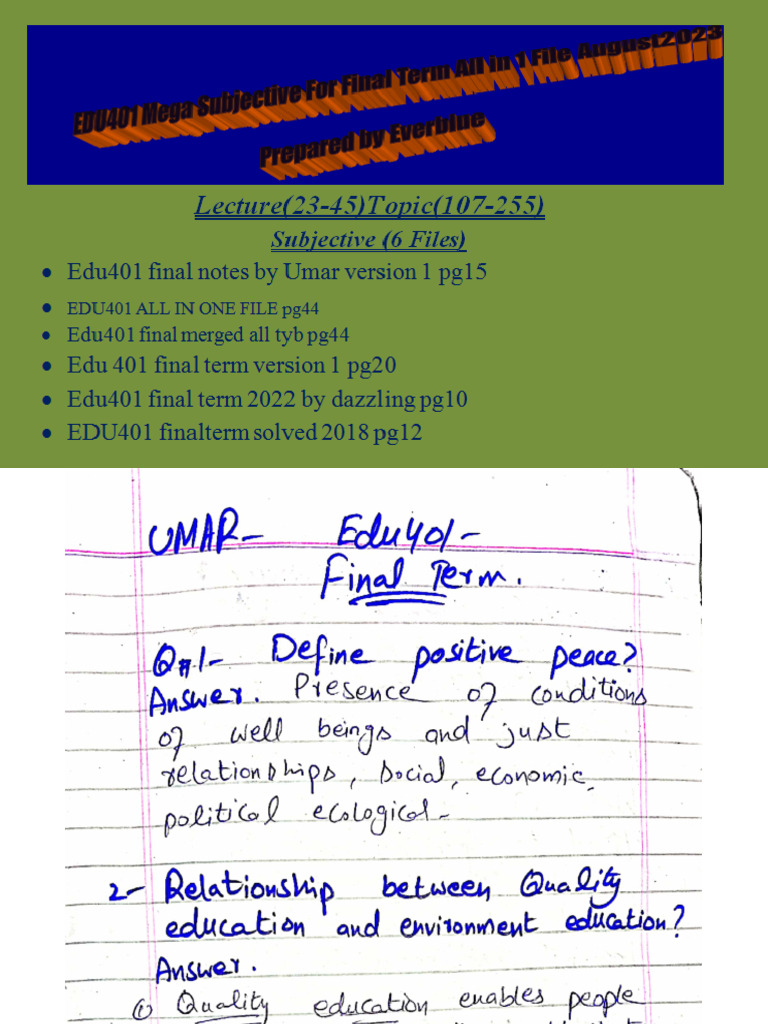 EDU401 Mega Subjective For Final Term All in 1 File August2023
Prepared by Everblue
Lecture(23-45)Topic(107-255)
Subjective (6 Files)
• Edu401 final notes by Umar version 1 pg15
• EDU401 ALL IN ONE FILE pg44
• Edu401 final merged all tyb pg44
• Edu 401 final term version 1 pg20
• Edu401 final term 2022 by dazzling pg10
• EDU401 finalterm solved 2018 pg12
UMAR- Edu401-
Final Term.
Q#1- Define positive peace?
Answer. Presence of conditions
of well beings and just
relationships, social, economic,
political ecological-
2- Relationship between Quality
education and environment education?
Answer.
① Quality education enables people